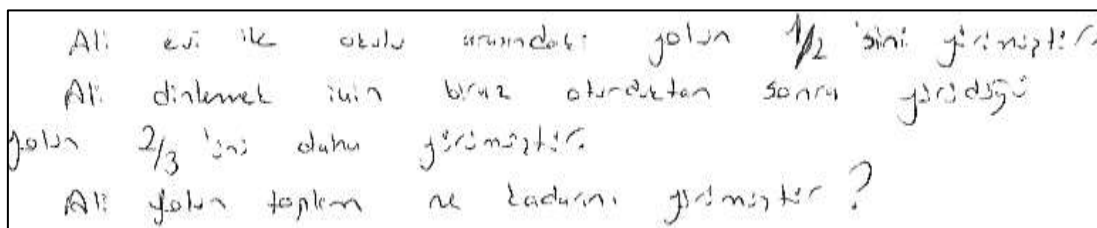 Ali evi ile okulu arasındaki yolun 1/2 'sini yürümüştür.
Ali dinlemek için biraz oturduktan sonra yürüdüğü
yolun 2/3 'ünü daha yürümüştür.
Ali yolun toplam ne kadarını yürümüştür?